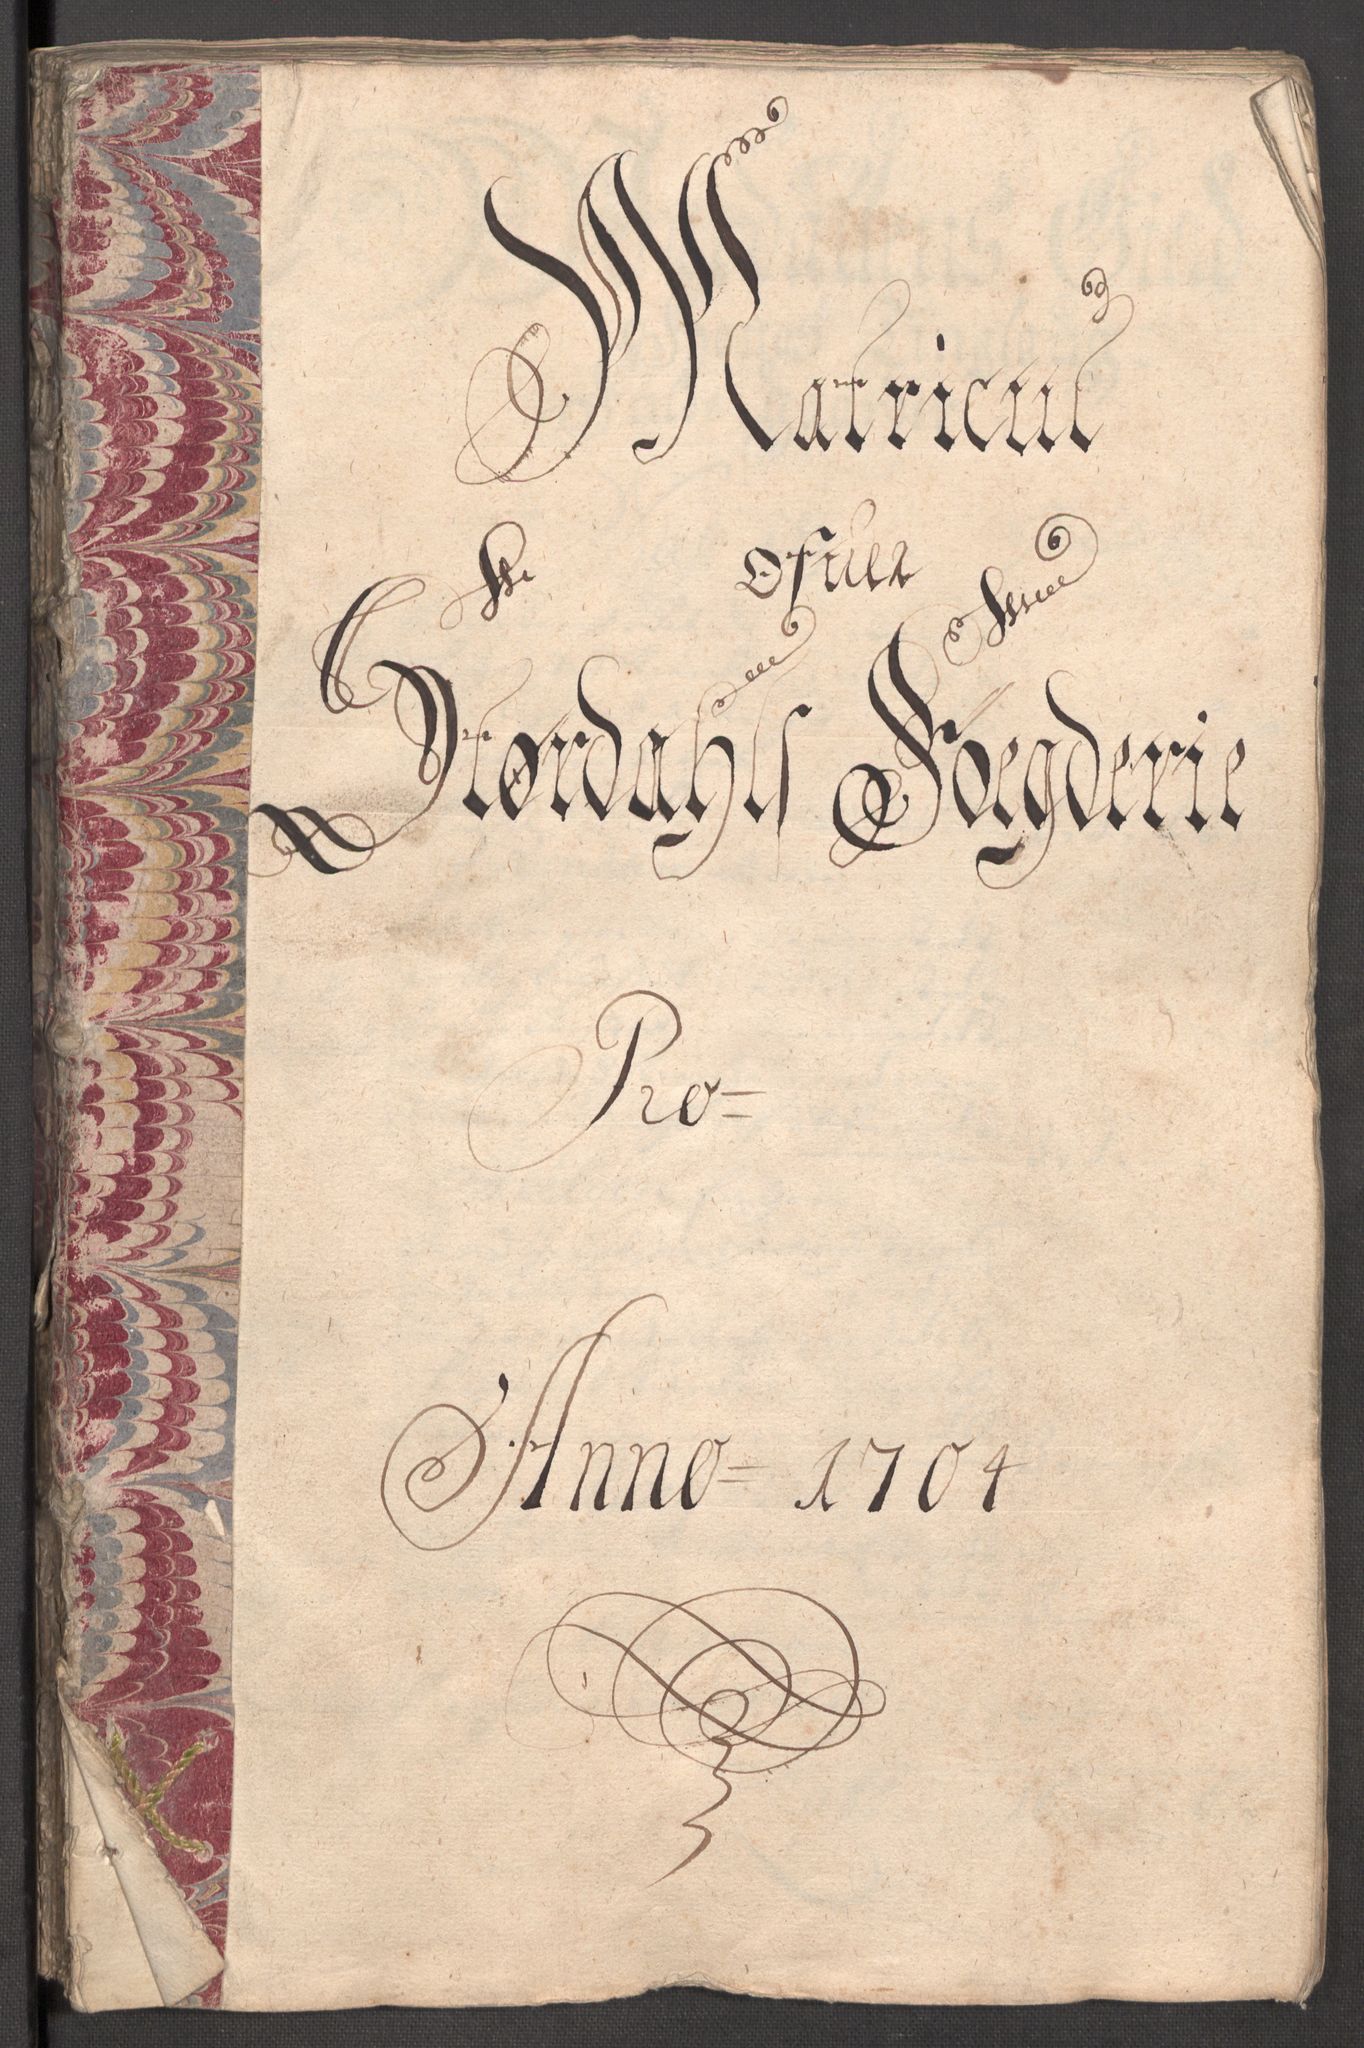 Matricul
Ofuer
Størdahls Fögderie
Pro=
Anno= 1704